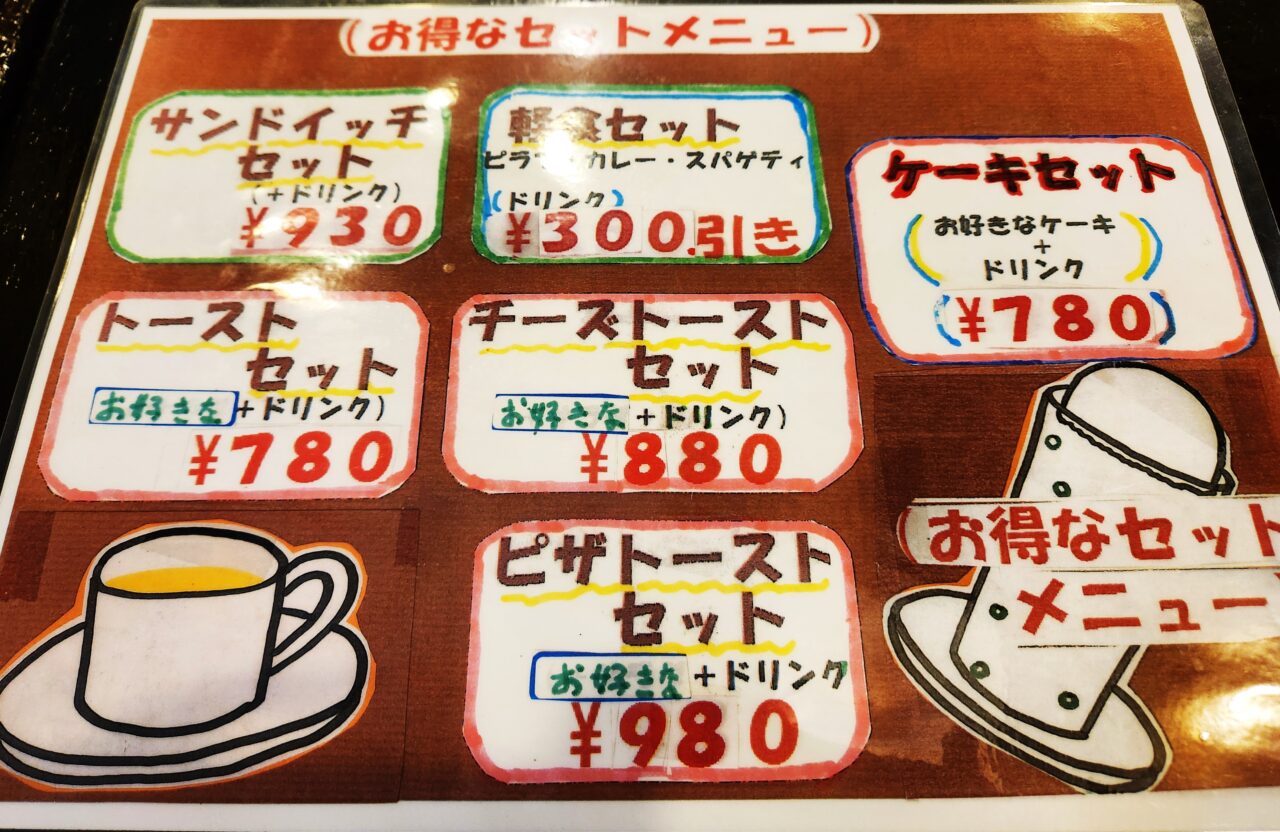 (お得なセットメニュー)
サンドイッチ
セット
(+ドリンク)
¥930
軽食セット
ピラフ・カレー・スパゲティ
(ドリンク)
¥300.引き
ケーキセット
(お好きなケーキ
+
ドリンク)
(¥780)
トースト
セット
お好きな+ドリンク)
¥780
チーズトースト
セット
お好きな+ドリンク)
¥880
ピザトースト
セット
お好きな+ドリンク
¥980
(お得なセット
メニュー)